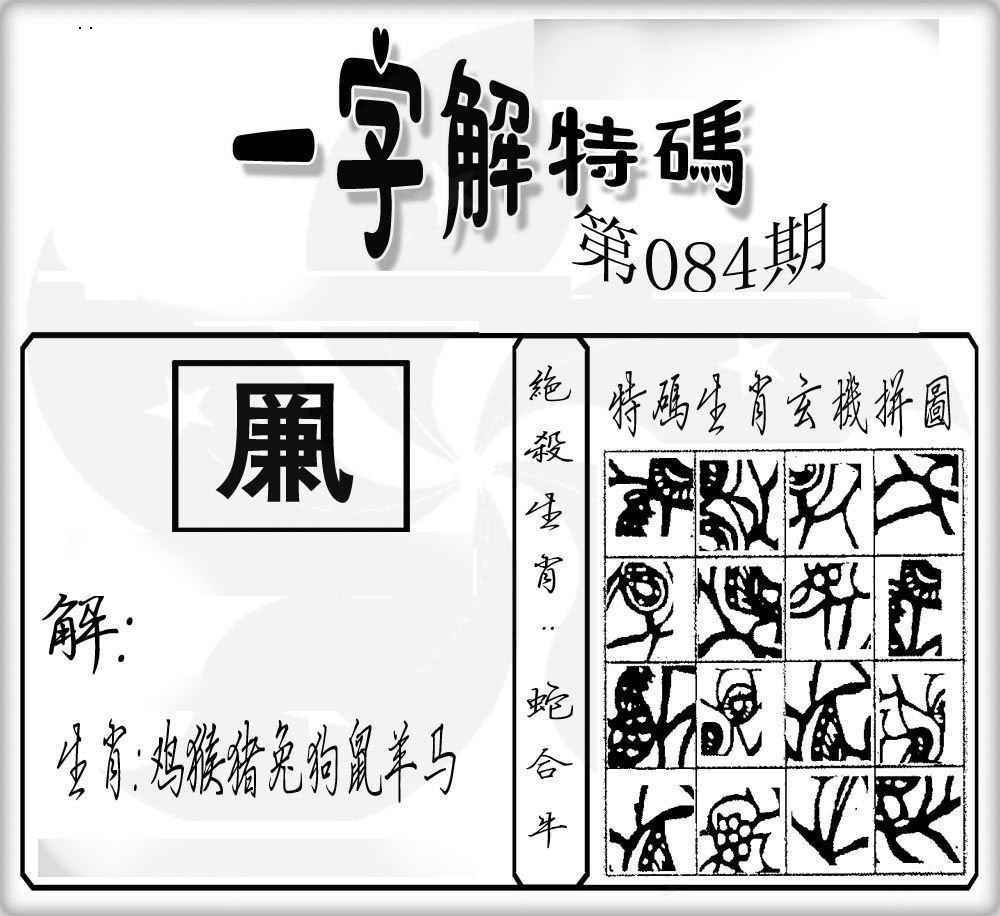 一字解特碼
第084期
解:
生肖:鸡猴猪兔狗鼠羊马
絕殺生肖:蛇合牛
特碼生肖玄機拼圖